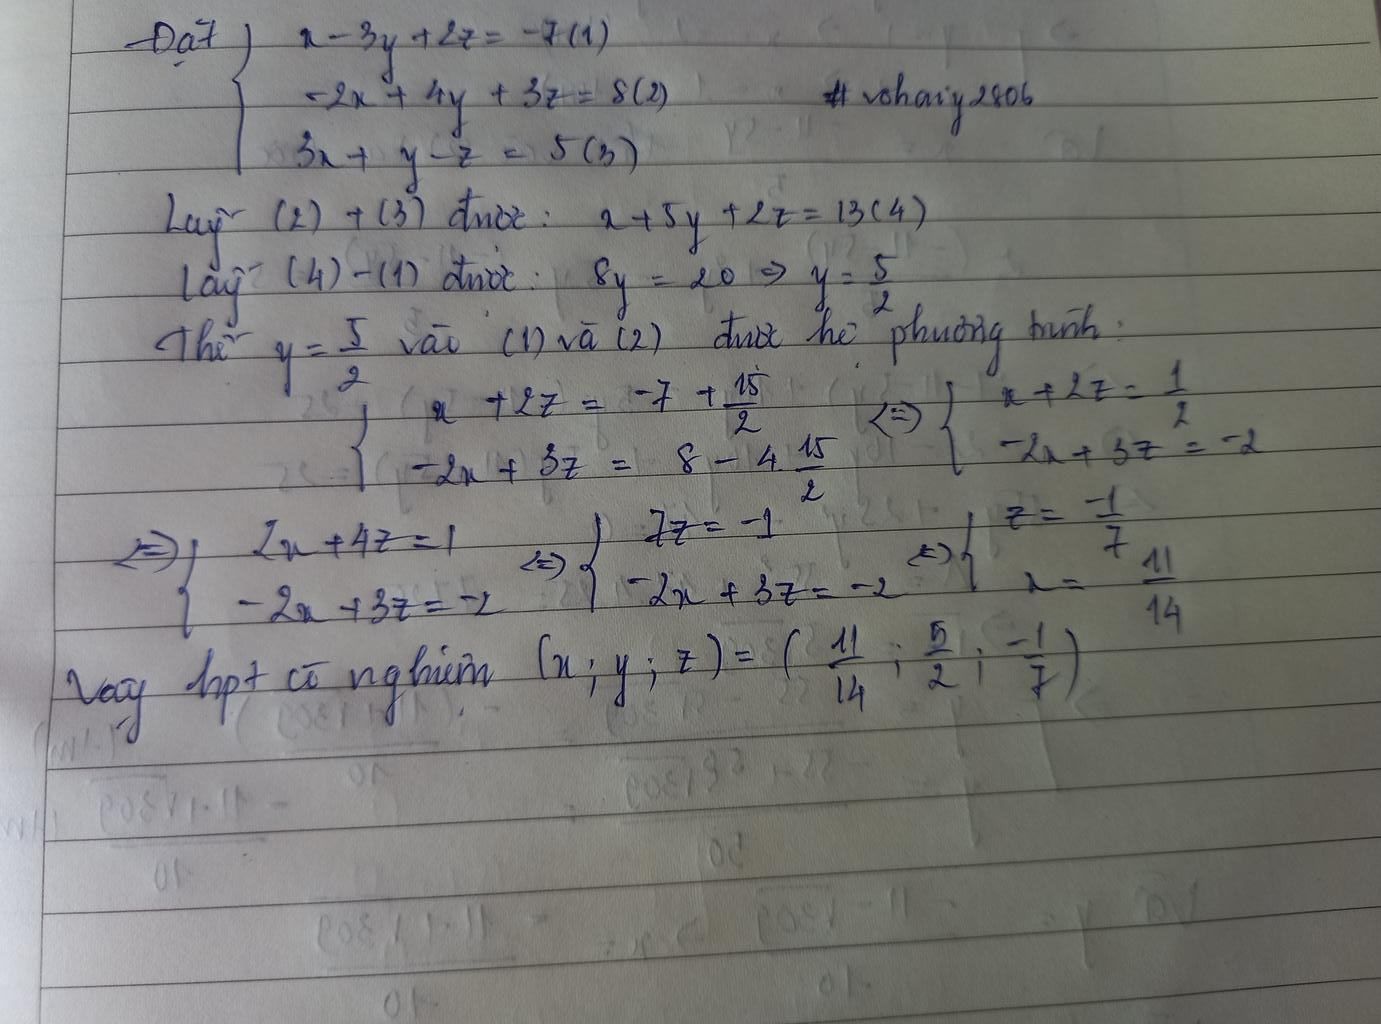 Đặt { x - 3y + 2z = -7 (1)
-2x + 4y + 3z = 8 (2) # vohaiy2806
3x + y - z = 5 (3)
Lấy (2) + (3) được: x + 5y + 2z = 13 (4)
Lấy (4) - (1) được: 8y = 20 => y = 5/2
Thế y = 5/2 vào (1) và (2) được hệ phương trình:
{ x + 2z = -7 + 15/2 <=> { x + 2z = 1/2
-2x + 3z = 8 - 4 15/2 -2x + 3z = -2
<=> { 2x + 4z = 1 <=> { 7z = -1 <=> { z = -1/7
-2x + 3z = -2 -2x + 3z = -2 x = 11/14
Vậy hpt có nghiệm (x; y; z) = (11/14; 5/2; -1/7)